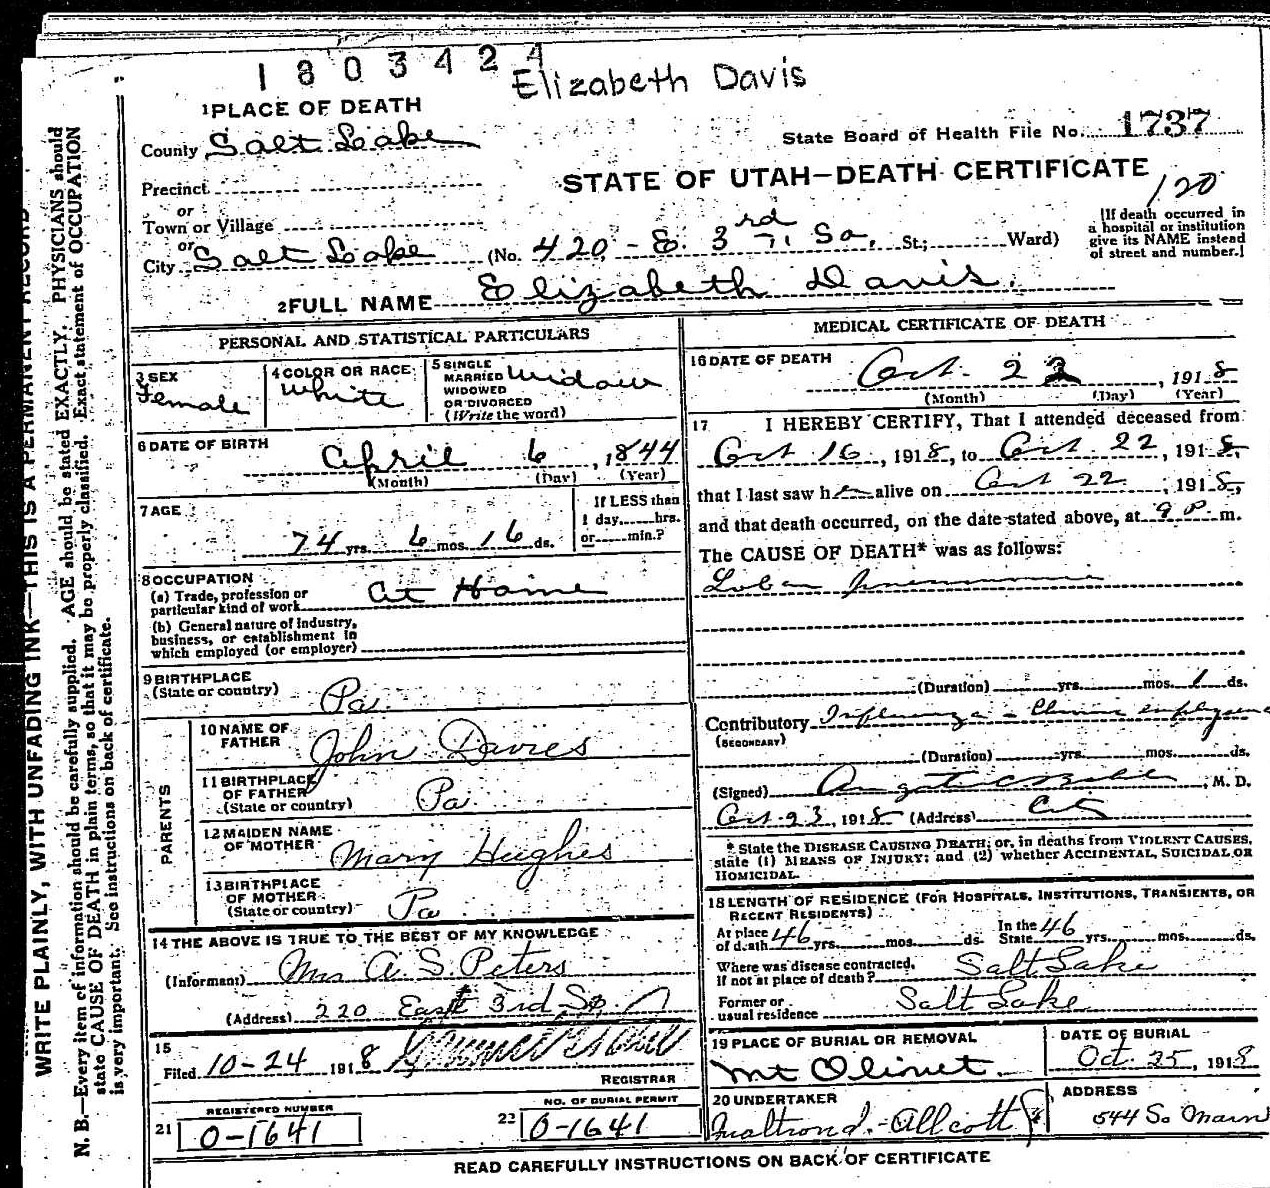 1803424
Elizabeth Davis
1 PLACE OF DEATH
County Salt Lake
State Board of Health File No. 1737
Precinct
STATE OF UTAH—DEATH CERTIFICATE
120
or
Town or Village
or
City Salt Lake (No. 420 - E. 3rd So. St.; Ward)
[If death occurred in
a hospital or institution
give its NAME instead
of street and number.]
2 FULL NAME Elizabeth Davis.
PERSONAL AND STATISTICAL PARTICULARS
3 SEX
Female
4 COLOR OR RACE
White
5 SINGLE
MARRIED
WIDOWED
OR DIVORCED
(Write the word)
Widow
6 DATE OF BIRTH
April 6, 1844
(Month) (Day) (Year)
7 AGE
74 yrs. 6 mos. 16 ds.
If LESS than
1 day......hrs.
or......min.?
8 OCCUPATION
(a) Trade, profession or
particular kind of work At Home
(b) General nature of Industry,
business, or establishment in
which employed (or employer)
9 BIRTHPLACE
(State or country) Pa.
PARENTS
10 NAME OF
FATHER John Davies
11 BIRTHPLACE
OF FATHER
(State or country) Pa.
12 MAIDEN NAME
OF MOTHER Mary Hughes
13 BIRTHPLACE
OF MOTHER
(State or country) Pa
14 THE ABOVE IS TRUE TO THE BEST OF MY KNOWLEDGE
(Informant) Mrs A. S. Peters
(Address) 220 East 3rd So.
15
Filed 10-24 1918
REGISTRAR
REGISTERED NUMBER
21 0-1641
NO. OF BURIAL PERMIT
22 0-1641
MEDICAL CERTIFICATE OF DEATH
16 DATE OF DEATH
Oct. 22, 1918
(Month) (Day) (Year)
17 I HEREBY CERTIFY, That I attended deceased from
Oct 16, 1918, to Oct 22, 1918,
that I last saw her alive on Oct 22, 1918,
and that death occurred, on the date stated above, at 9 P. m.
The CAUSE OF DEATH* was as follows:
Lobar Pneumonia
(Duration) yrs. mos. 1 ds.
Contributory Influenza - Chronic emphysema
(SECONDARY)
(Duration) yrs. mos. ds.
(Signed) M. D.
Oct. 23, 1918 (Address) City
* State the DISEASE CAUSING DEATH; or, in deaths from VIOLENT CAUSES,
state (1) MEANS OF INJURY; and (2) whether ACCIDENTAL, SUICIDAL OR
HOMICIDAL.
18 LENGTH OF RESIDENCE (FOR HOSPITALS, INSTITUTIONS, TRANSIENTS, OR
RECENT RESIDENTS)
At place
of death 46 yrs. mos. ds.
In the
State 46 yrs. mos. ds.
Where was disease contracted,
if not at place of death? Salt Lake
Former or
usual residence Salt Lake
19 PLACE OF BURIAL OR REMOVAL
Mt Olivet.
DATE OF BURIAL
Oct. 25, 1918
20 UNDERTAKER
Allcott
ADDRESS
544 So Main
READ CAREFULLY INSTRUCTIONS ON BACK OF CERTIFICATE
WRITE PLAINLY, WITH UNFADING INK—THIS IS A PERMANENT RECORD
N. B.—Every item of information should be carefully supplied. AGE should be stated EXACTLY. PHYSICIANS should
state CAUSE OF DEATH in plain terms, so that it may be properly classified. Exact statement of OCCUPATION
is very important. See instructions on back of certificate.